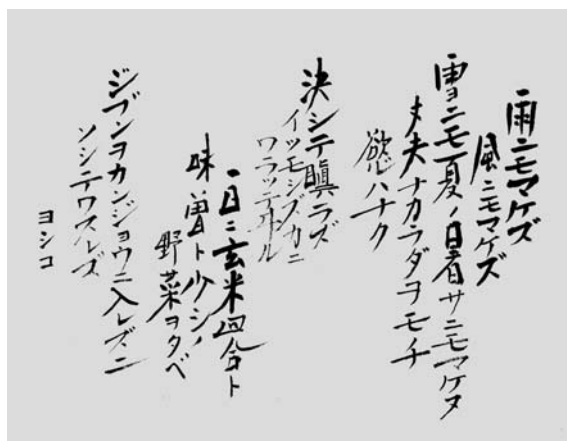 雨ニモマケズ
風ニモマケズ
雪ニモ夏ノ暑サニモマケヌ
丈夫ナカラダヲモチ
慾ハナク
決シテ瞋ラズ
イツモシズカニ
ワラッテヰル
一日ニ玄米四合ト
味曽ト少シノ
野菜ヲタベ
ジブンヲカンジョウニ入レズニ
ソシテワスレズ
ヨシコ